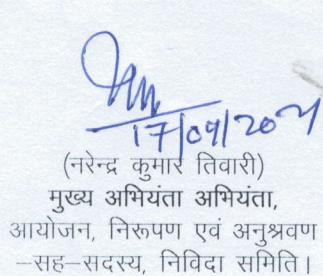 17/09/2021
(नरेन्द्र कुमार तिवारी)
मुख्य अभियंता अभियंता,
आयोजन, निरूपण एवं अनुश्रवण
–सह–सदस्य, निविदा समिति।